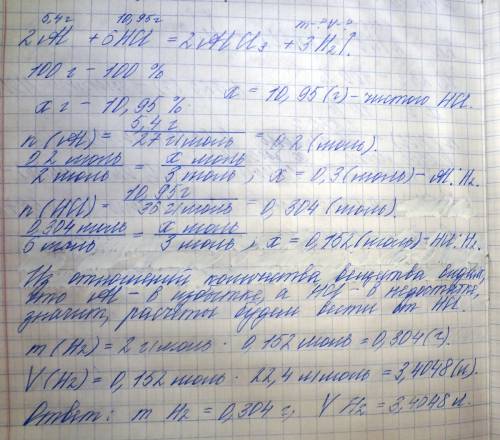 5,4г 10,95г m-? V-?
2Al + 6HCl = 2AlCl₃ + 3H₂↑.
100 г - 100 %
x г - 10,95 % x = 10,95 (г) - чистого HCl.
n (Al) = 5,4 г / 27 г/моль = 0,2 (моль).
0,2 моль / 2 моль = x моль / 3 моль ; x = 0,3 (моль) - Al : H₂.
n (HCl) = 10,95г / 36 г/моль = 0,304 (моль).
0,304 моль / 6 моль = x моль / 3 моль , x = 0,152 (моль) - HCl : H₂.
Из отношений количества вещества видим,
что Al - в избытке, а HCl - в недостатке,
значит, расчёты будем вести от HCl.
m (H₂) = 2 г/моль · 0,152 моль = 0,304 (г).
V (H₂) = 0,152 моль · 22,4 л/моль = 3,4048 (л).
Ответ: m H₂ = 0,304 г, V H₂ = 3,4048 л.